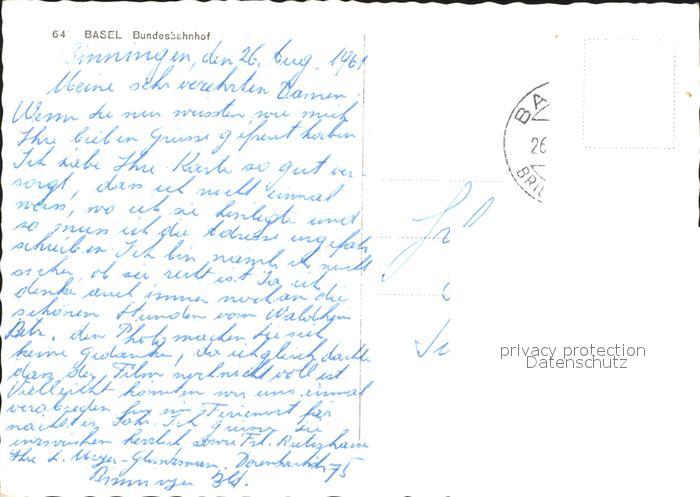 64 BASEL Bundesbahnhof
Binningen, den 26. Aug. 1961
Meine sehr verehrten Damen
Wenn Sie nur wüssten, wie mich
Ihre lieben Grüsse gefreut haben
Ich habe Ihre Karte so gut ver-
sorgt, dass ich nicht einmal
weiss, wo ich sie hinlegte und
so muss ich die Adresse ungefähr
schreiben. Ich bin nämlich nicht
sicher, ob sie recht ist. Ja ich
denke auch immer noch an die
schönen Stunden vom
Betr. den Photo machen, Sie sich
keine Gedanken, da ich gleich dachte
dass der Film noch nicht voll ist
Vielleicht könnten wir uns einmal
verabreden für ein Ferienort fürs
nächste Jahr. Ich grüsse Sie
inzwischen herzlich sowie Frl.
Ihre L. Meyer- 75
Binningen Bld.
BA
26
BRI
privacy protection
Datenschutz